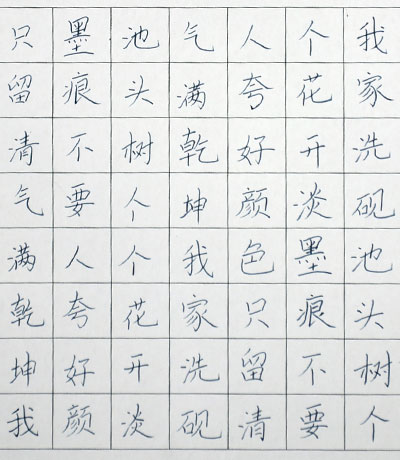 我家洗砚池头树个
个花开淡墨痕不要
人夸好颜色只留清
气满乾坤我家洗砚
池头树个个花开淡
墨痕不要人夸好颜
只留清气满乾坤我